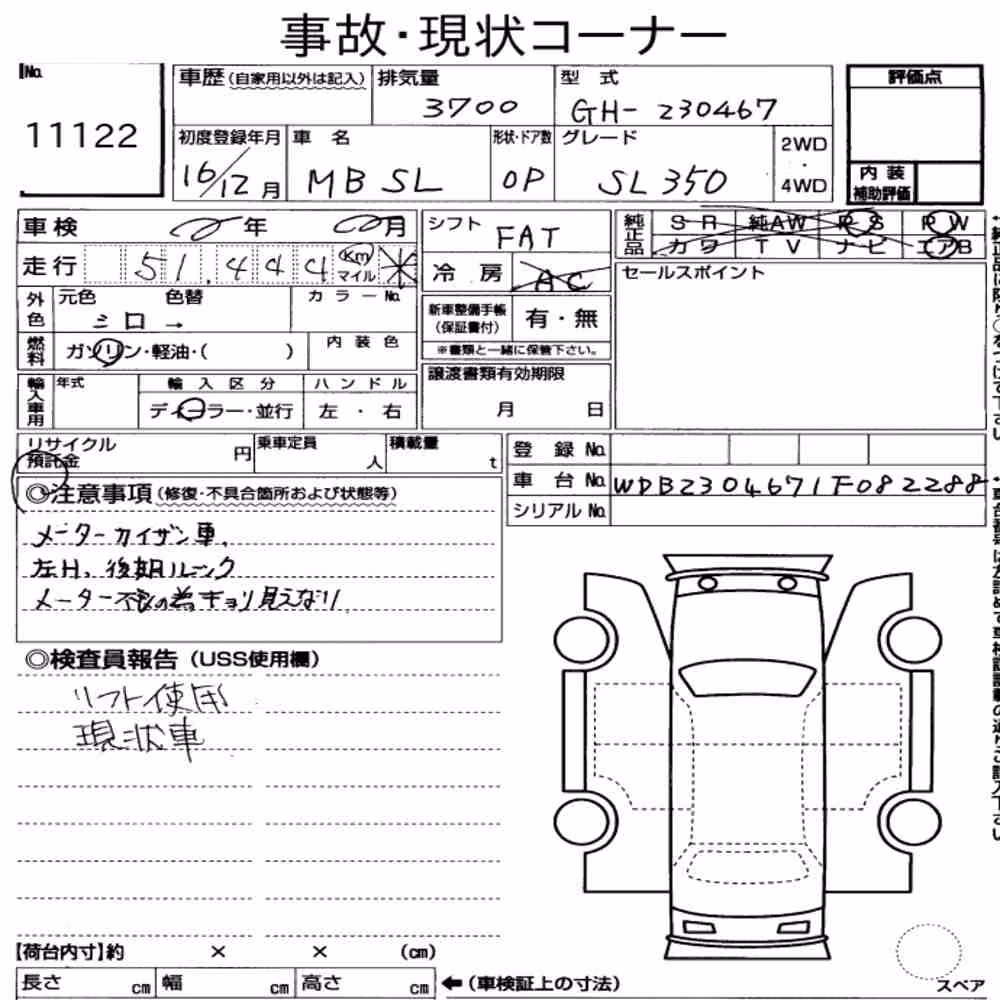 事故・現状コーナー
No.
11122
車歴(自家用以外は記入)
排気量
3700
型 式
GH-230467
評価点
初度登録年月
16/12月
車 名
MB SL
形状・ドア数
OP
グレード
SL350
2WD
・
4WD
内 装
補助評価
車検 年 月
シフト
FAT
純正品
SR 純AW PS PW
カワ TV ナビ エアB
走行 51,444 km マイル
冷 房
AC
セールスポイント
外色
元色 色替
シロ→
カラーNo.
新車整備手帳
(保証書付)
有・無
※書類と一緒に保管下さい。
燃料
ガソリン・軽油・( )
内 装 色
輸入車用
年式
輸 入 区 分
ディーラー・並行
ハ ン ド ル
左 ・ 右
譲渡書類有効期限
月 日
リサイクル
預託金
円
乗車定員
人
積載量
t
登 録 No.
車 台 No. WDB2304671F082288
シリアル No.
◎注意事項(修復・不具合箇所および状態等)
メーターカイザン車、
左H、後期ルック
メーター不良の為、キョリ見えなり
◎検査員報告(USS使用欄)
リフト使用
現状車
【荷台内寸】約 × × (cm)
長さ cm 幅 cm 高さ cm
←(車検証上の寸法)
スペア